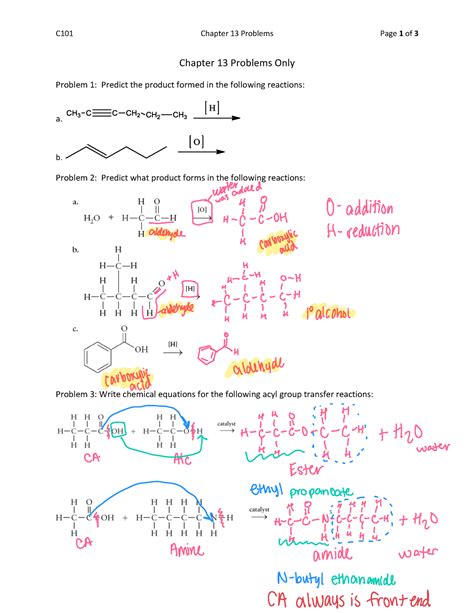 C101 Chapter 13 Problems Page 1 of 3
Chapter 13 Problems Only
Problem 1: Predict the product formed in the following reactions:
a. CH₃-C≡C-CH₂-CH₂-CH₃ [H]
b. [O]
Problem 2: Predict what product forms in the following reactions:
water was added
a. H₂O + H-C-C-H [O] H-C-C-OH
H O
H aldehyde
carboxylic acid
O- addition
H- reduction
b.
H
H-C-H
H H O +H
H-C-C-C-C [H]
H H H H aldehyde
H-C-H
O-H
1° alcohol
c.
O
OH [H] O
H
carboxylic acid
aldehyde
Problem 3: Write chemical equations for the following acyl group transfer reactions:
H H O H H catalyst
H-C-C-C-OH + H-C-C-O-H H-C-C-C-O-C-C-H + H₂O
H H H H water
CA Alc Ester
ethyl propanoate
H O H H H H H catalyst
H-C-C-OH + H-C-C-C-C-N-H H-C-C-N-C-C-C-C-H + H₂O
H H H H H
CA Amine amide water
N-butyl ethanamide
CA always is front end